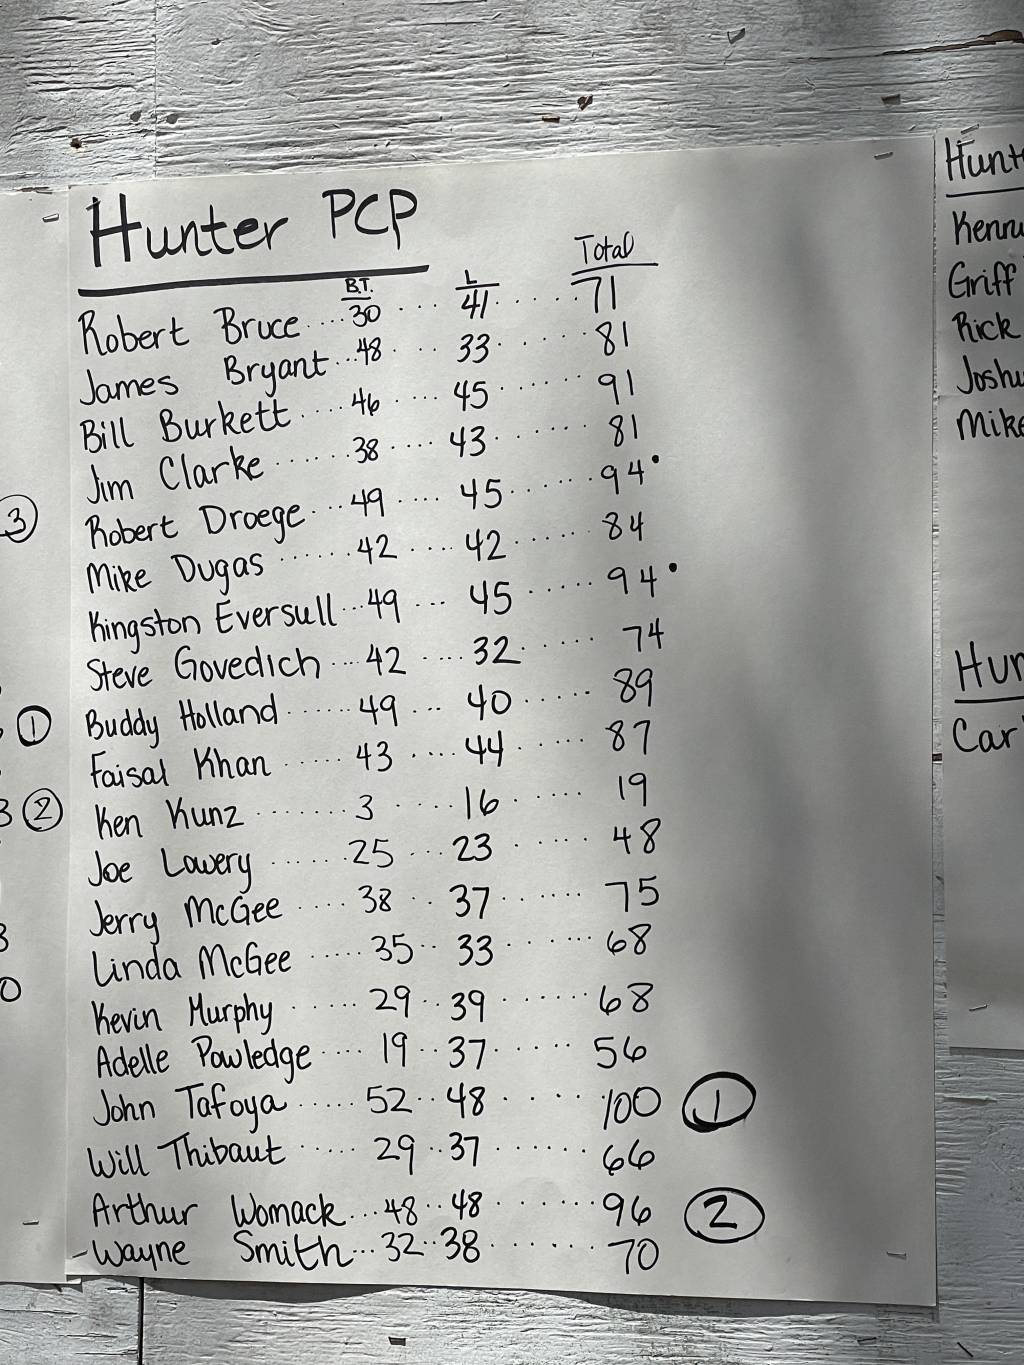 Hunter PCP
B.T. L Total
Robert Bruce ... 30 ... 41 ... 71
James Bryant ... 48 ... 33 ... 81
Bill Burkett ... 46 ... 45 ... 91
Jim Clarke ... 38 ... 43 ... 81
Robert Droege ... 49 ... 45 ... 94•
Mike Dugas ... 42 ... 42 ... 84
Kingston Eversull ... 49 ... 45 ... 94•
Steve Govedich ... 42 ... 32 ... 74
Buddy Holland ... 49 ... 40 ... 89
Faisal Khan ... 43 ... 44 ... 87
Ken Kunz ... 3 ... 16 ... 19
Joe Lowery ... 25 ... 23 ... 48
Jerry McGee ... 38 ... 37 ... 75
Linda McGee ... 35 ... 33 ... 68
Kevin Murphy ... 29 ... 39 ... 68
Adelle Powledge ... 19 ... 37 ... 56
John Tafoya ... 52 ... 48 ... 100 ①
Will Thibaut ... 29 ... 37 ... 66
Arthur Womack ... 48 ... 48 ... 96 ②
Wayne Smith ... 32 ... 38 ... 70
③
①
3 ②
3
0
Griff
Rick
Mike